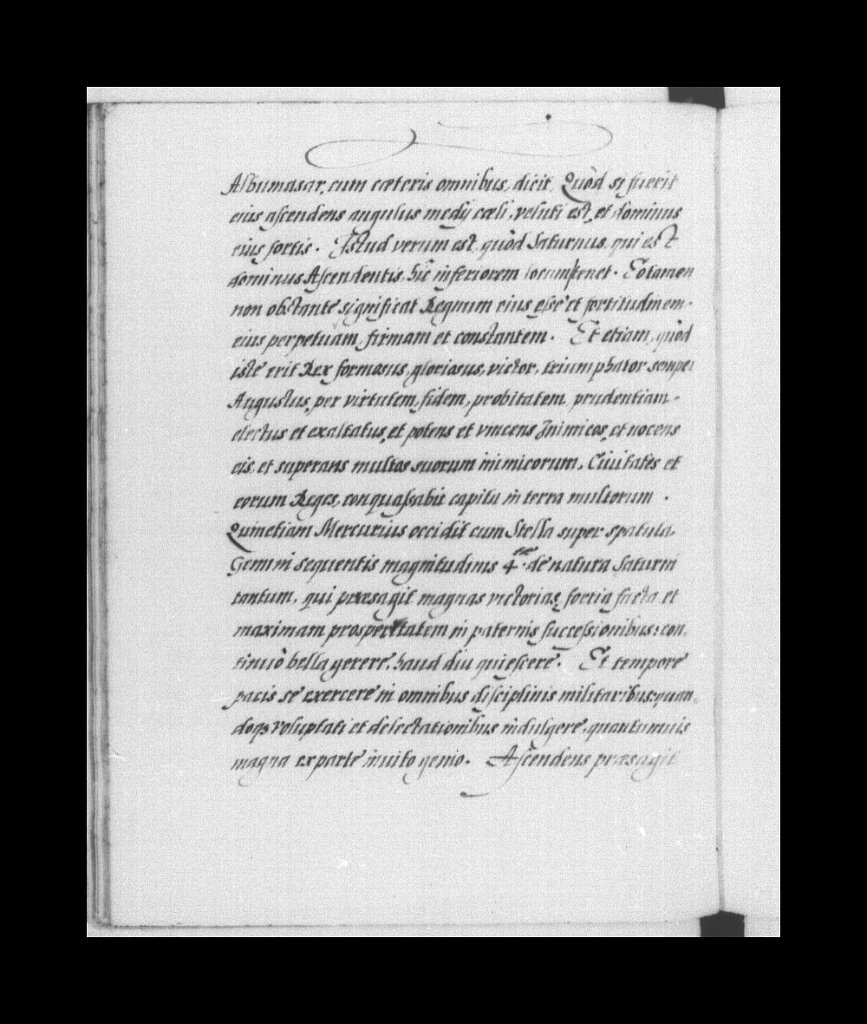 Albumasar, cum cæteris omnibus, dicit, Quòd si fuerit
eius ascendens angulus medij cæli, veluti est, et dominus
eius fortis. Istud verum est, quòd Saturnus, qui est
dominus Ascendentis, hic inferiorem locum tenet. Et tamen
non obstante significat Regnum eius esse et fortitudinem
eius perpetuam, firmam et constantem. Et etiam, quòd
iste erit Rex formosus, gloriosus, victor, triumphator semper
Augustus, per virtutem, fidem, probitatem, prudentiam
electus et exaltatus, et potens et vincens Inimicos, et nocens
eis, et superans multos suorum inimicorum. Ciuitates et
eorum Reges, conquassabit capita in terra multorum.
Quinetiam Mercurius occidit cum Stella super spatula
Gemini sequentis magnitudinis 4æ. de natura Saturni
tantum, qui præsagit magnas victorias, fortia facta et
maximam prosperitatem in paternis successionibus: con-
tinuò bella gerere, haud diu quiescere. Et tempore
pacis se exercere in omnibus disciplinis militaribus: quan-
doqȝ voluptati et delectationibus indulgere, quantumuis
magna ex parte inuito genio. Ascendens præsagit